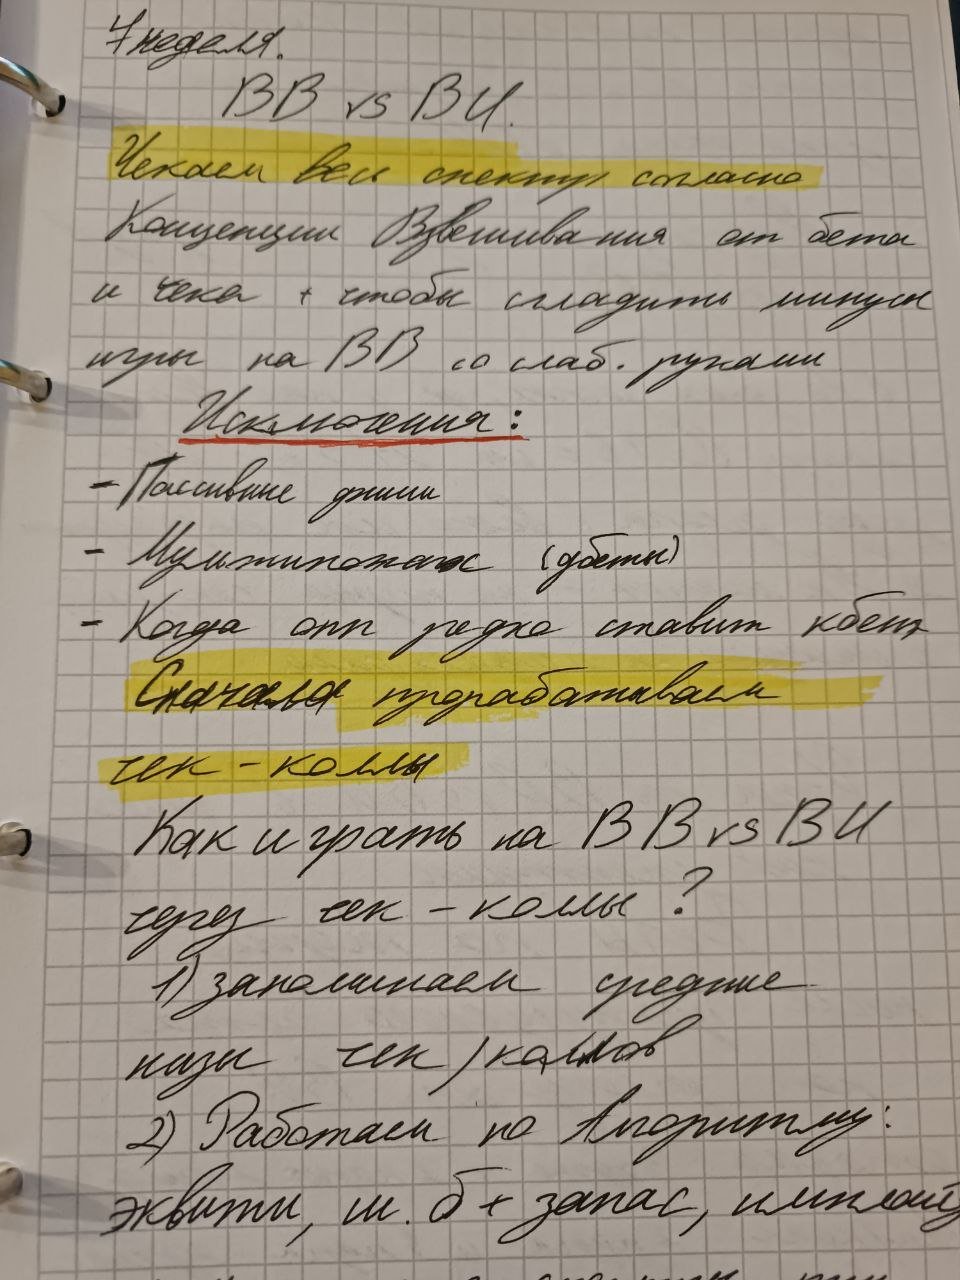 7 неделя.
BB vs BU.
Чекаем весь спектр согласно
Концепции Взвешивания от бета
и чека + чтобы сгладить минусы
игры на BB со слаб. руками
Исключения:
- Пассивные
- Мультипотах (дбеты)
- Когда опп редко ставит кбет
Сначала прорабатываем
чек-коллы
Как играть на BB vs BU
через чек-коллы?
1) запоминаем средние
чек/коллов
2) Работаем по Алгоритму:
эквити, ш. б + запас, имплайд